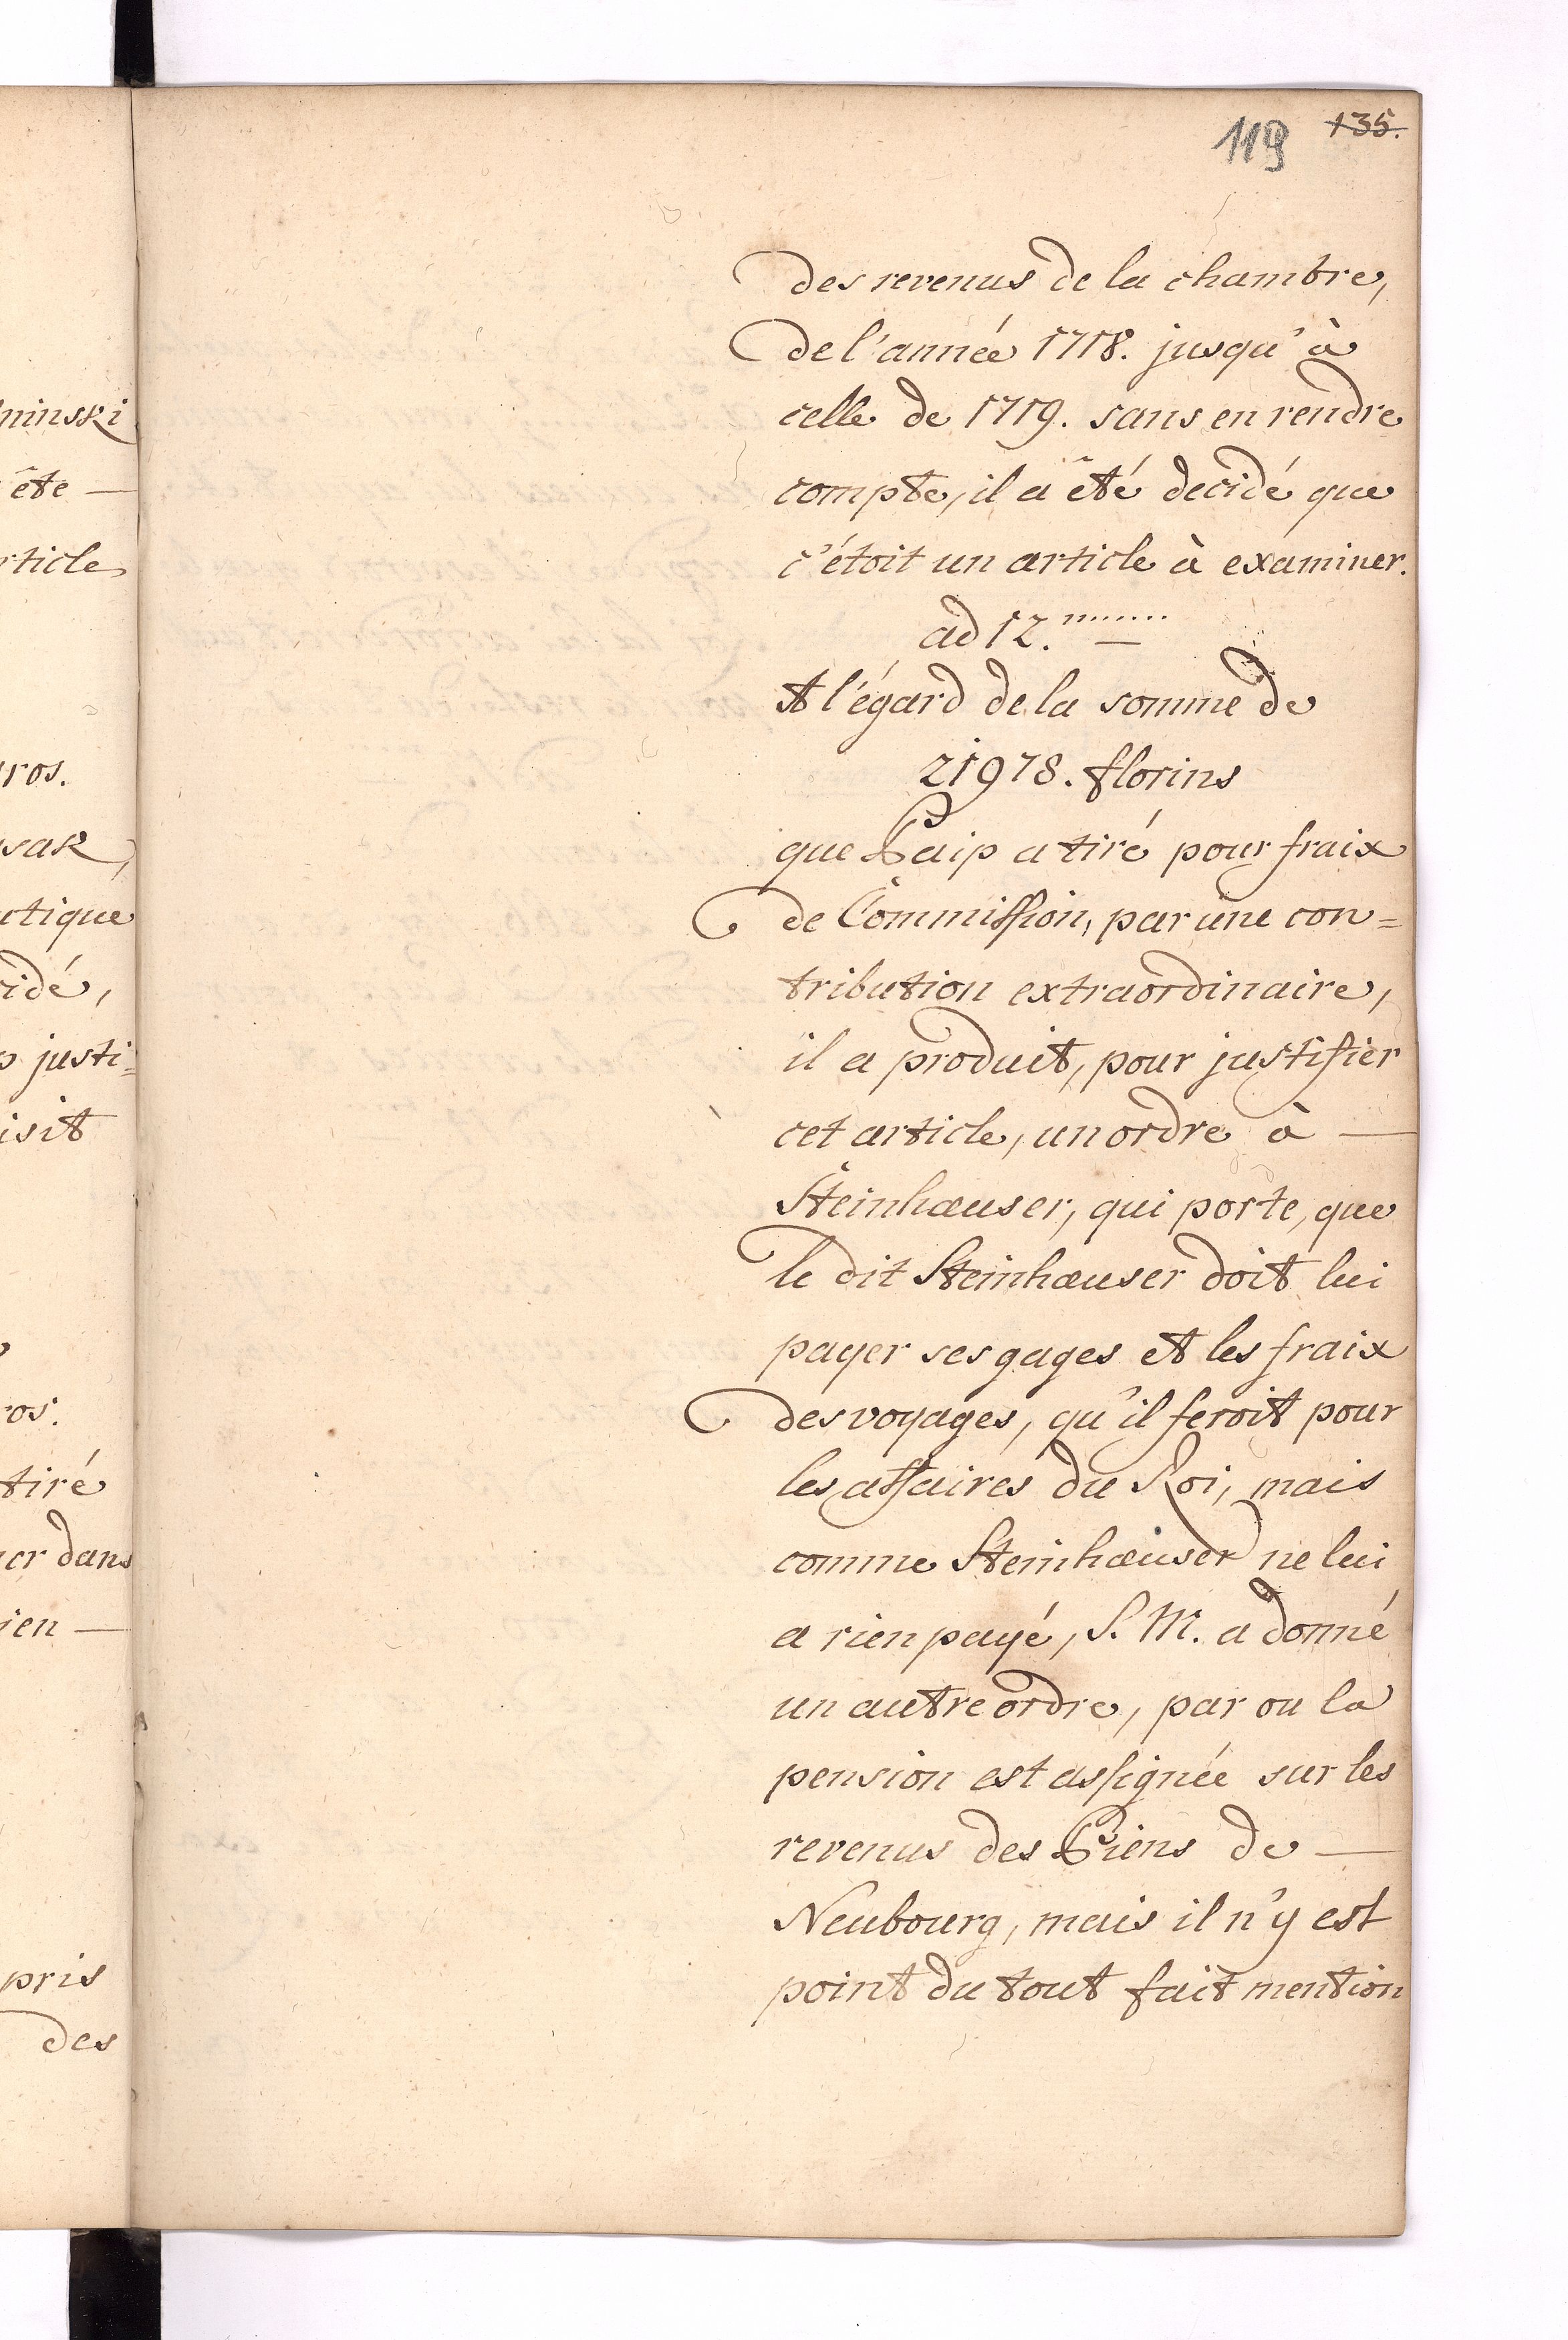 119 135.
des revenus de la chambre,
de l'année 1718. jusqu'à
celle de 1719. sans en rendre
compte, il a êté decidé que
c'étoit un article à examiner.
ad 12.
A l'égard de la somme de
21978. florins
que Baip a tiré pour fraix
de Commission, par une con=
tribution extraordinaire,
il a produit, pour justifier
cet article, un ordre à —
Steinhæuser, qui porte, que
le dit Steinhæuser doit lui
payer ses gages et les fraix
des voyages, qu'il feroit pour
les affaires du Roi, mais
comme Steinhæuser ne lui
a rien payé, S. M. a donné
un autre ordre, par ou la
pension est assignée sur les
revenus des Biens de —
Neubourg, mais il n'y est
point du tout fait mention
ninski
ête —
rticle
ros.
sak,
utique
idé,
justi=
isit
ros.
tiré
er dans
ien —
pris
des